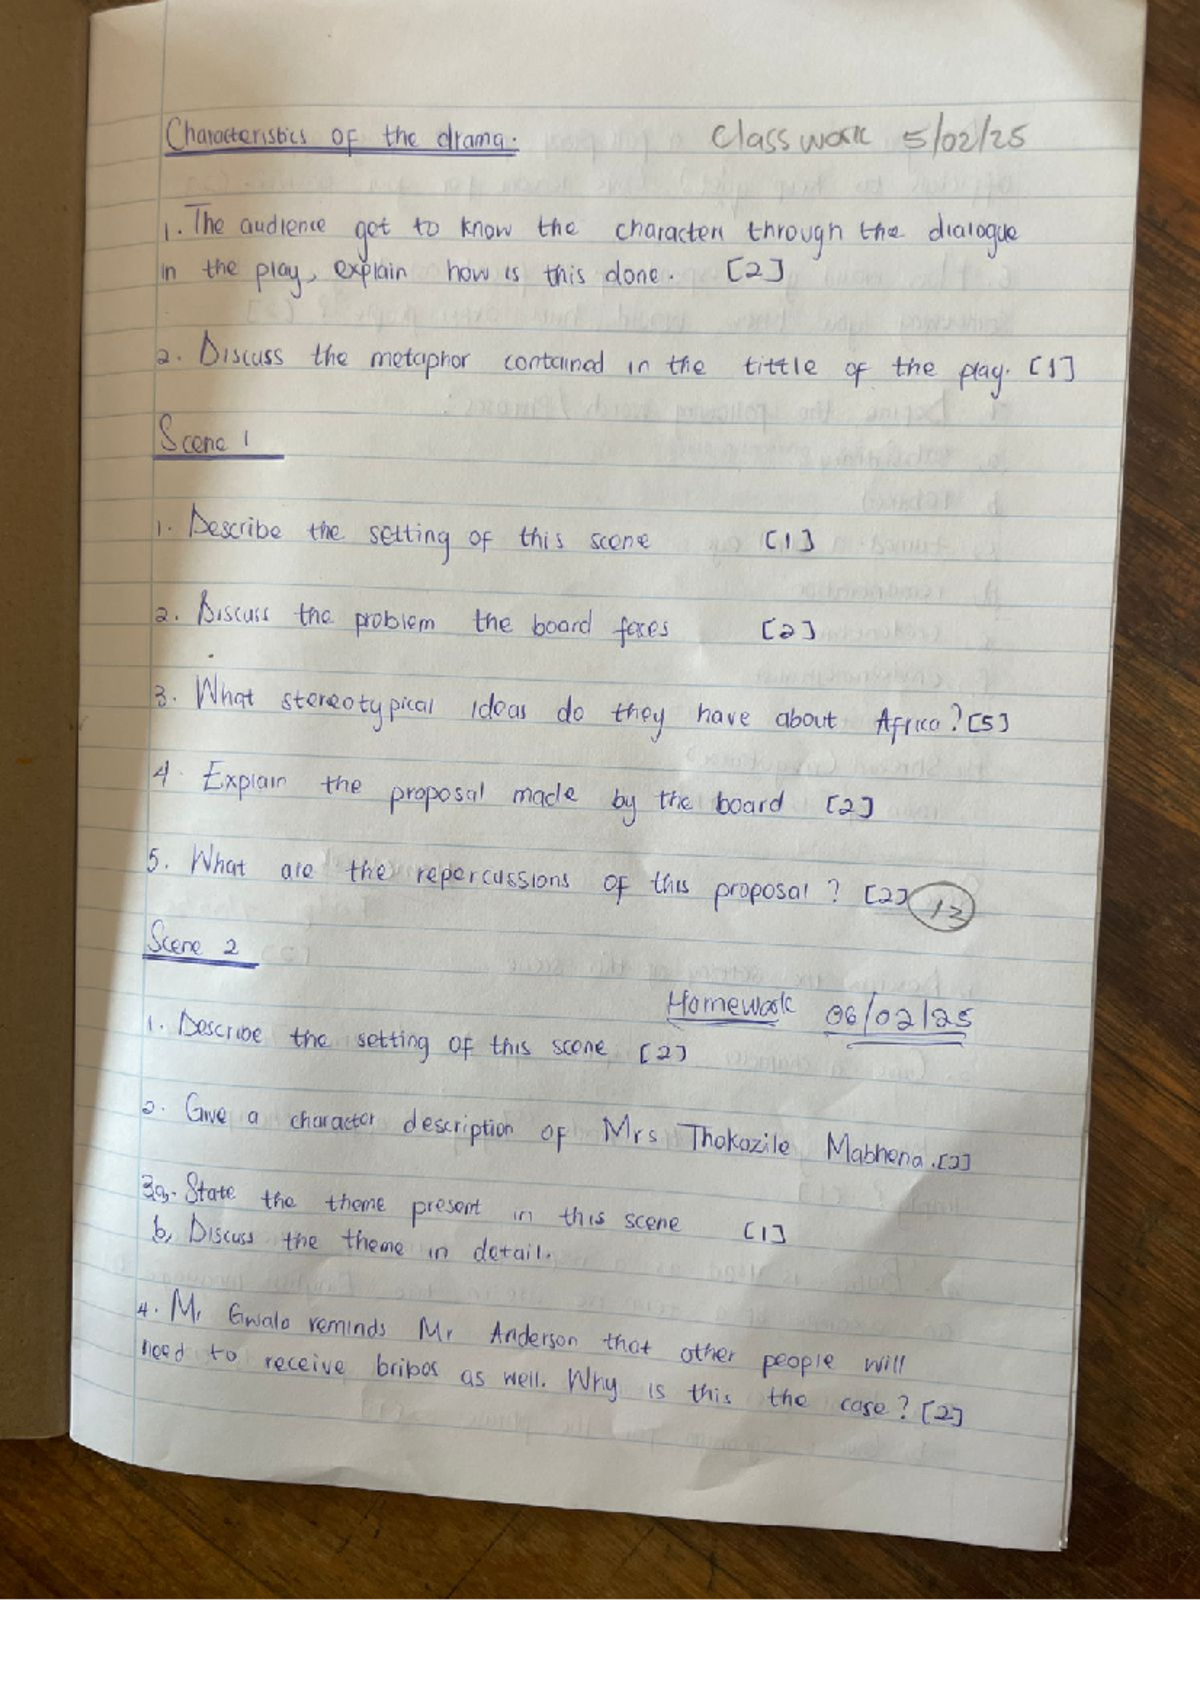 Characteristics of the drama.
Class work 5/02/25
1. The audience get to know the characters through the dialogue
in the play, explain how is this done. [2]
2. Discuss the metaphor contained in the tittle of the play. [1]
Scene 1
1. Describe the setting of this scene [1]
2. Discuss the problem the board faces [2]
3. What stereotypical ideas do they have about Africa? [5]
4. Explain the proposal made by the board [2]
5. What are the repercussions of this proposal? [2] 12
Scene 2
Homework 06/02/25
1. Describe the setting of this scene [2]
2. Give a character description of Mrs Thokozile Mabhena. [2]
3a. State the theme present in this scene [1]
b, Discuss the theme in detail.
4. Mr Gwala reminds Mr Anderson that other people will
need to receive bribes as well. Why is this the case? [2]